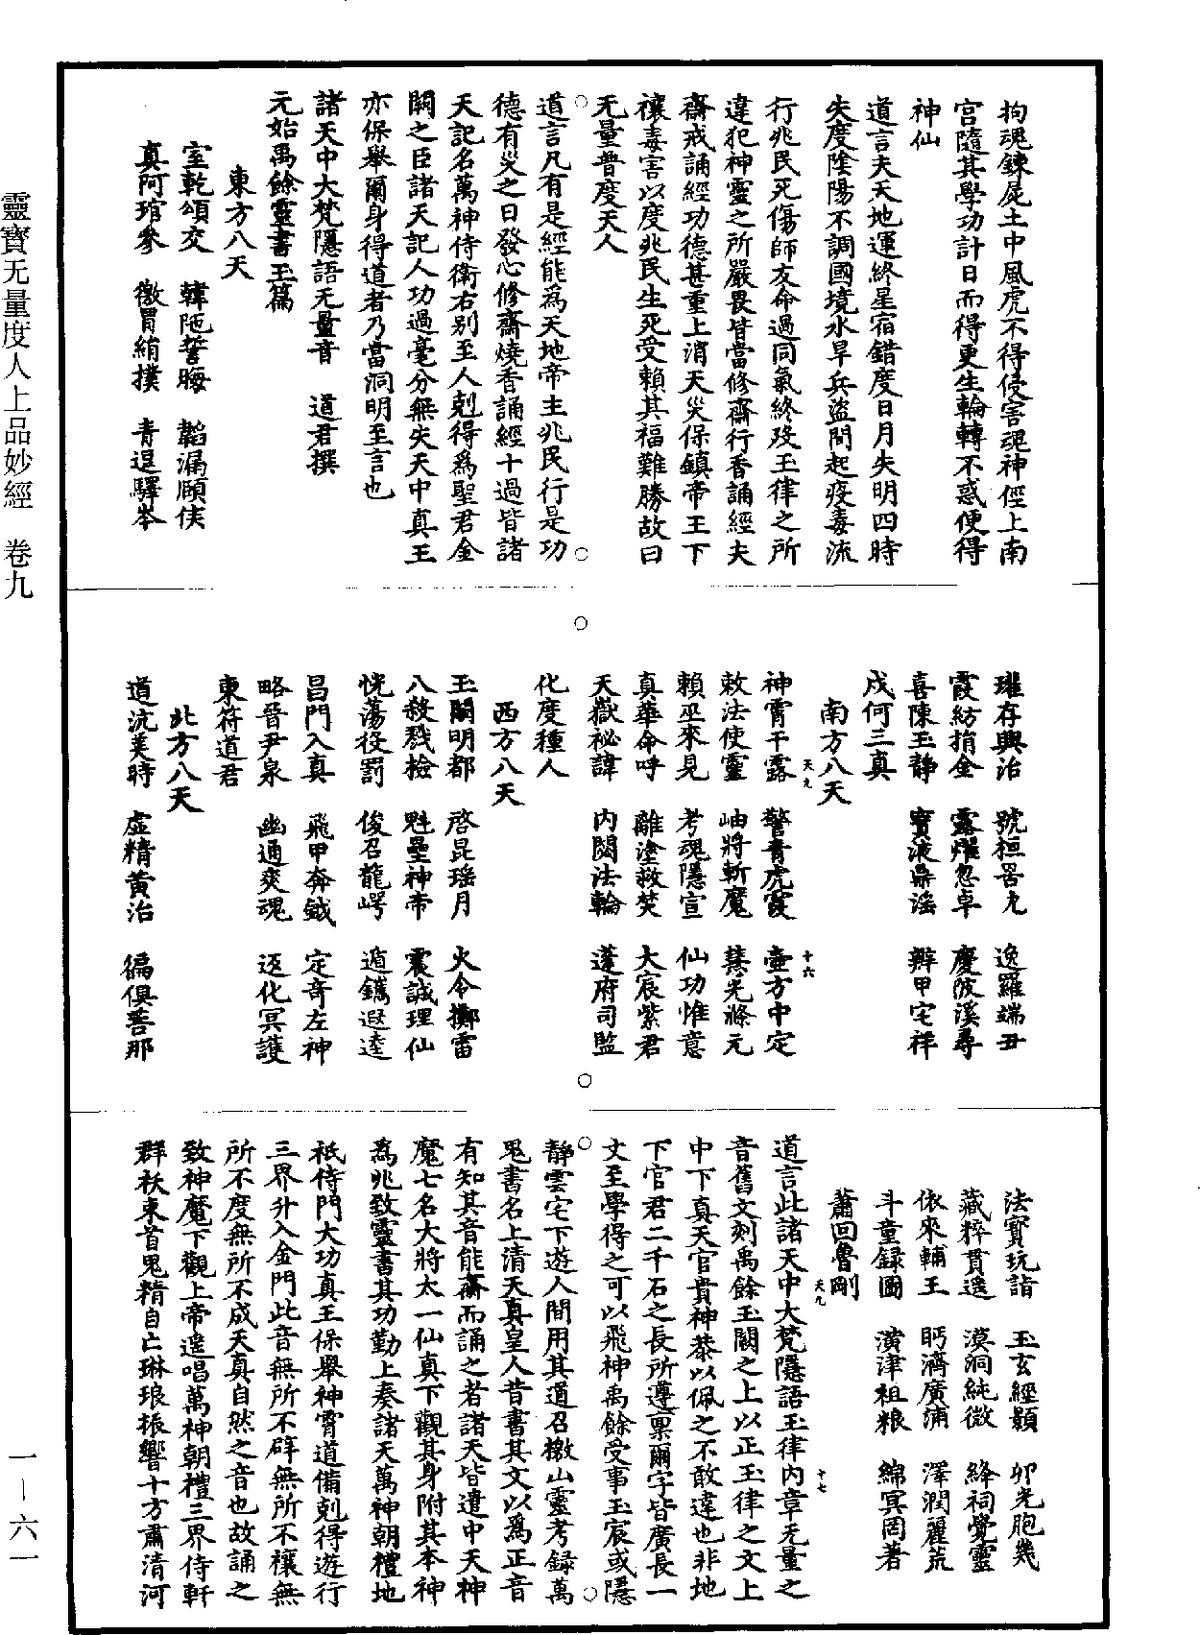 拘魂鍊屍土中風虎不得侵害魂神俓上南
宮隨其學功計日而得更生輪轉不惑便得
神仙
道言夫天地運終星宿錯度日月失明四時
失度陰陽不調國境水旱兵盜間起疫毒流
行兆民死傷師友命過同氣終歿玉律之所
違犯神靈之所嚴畏皆當修齋行香誦經夫
齋戒誦經功德甚重上消天災保鎮帝王下
禳毒害以度兆民生死受賴其福難勝故曰
无量普度天人
道言凡有是經能為天地帝主兆民行是功
德有災之日發心修齋燒香誦經十過皆諸
天記名萬神侍衛右別至人剋得為聖君金
闕之臣諸天記人功過毫分無失天中真王
亦保舉爾身得道者乃當洞明至言也
諸天中大梵隱語无量音 道君撰
元始禹餘靈書玉篇
東方八天
室乾頌交 韓陁誓晦 韜漏頤俠
真阿琯參 徼胃綃撲 青遈驛峯
璀存興治 號桓罟允 逸羅端丑
霞紡捎金 露燿忽卓 慶陂溪尋
喜陳玉靜 寶液鼎謠 辮甲宅祥
戍何三真
南方八天
神霄干露 警青虎霞 壷方中定
天九 十六
敕法使靈 岫將斬魔 慧光滌元
賴巫來見 考魂隱宣 仙功惟意
真華命呼 離塗救焚 大宸紫君
天嶽祕諱 内闕法輪 蓬府司監
化度種人
西方八天
玉關明都 啓昆瑶月 火令擲雷
八殺戮檢 魁壘神帝 震誠理仙
恍蕩役罰 俊召龍崿 遁鑴遐逵
昌門入真 飛甲奔鉞 定奇左神
略晉尹泉 幽通爽魂 返化冥護
東符道君
北方八天
道沇美時 虛精黃治 徧俱善那
法寶玩詣 玉玄經顥 卯光胞幾
藏粹貫邃 漠洞純微 絳祠覺靈
依來輔王 眄濟廣浦 澤潤麗荒
斗童録圖 潢津祖粮 綿冥罔著
蕭回魯剛
天九 十七
道言此諸天中大梵隱語玉律内章无量之
音舊文刻禹餘玉闕之上以正玉律之文上
中下真天官貴神恭以佩之不敢違也非地
下官君二千石之長所遵稟爾字皆廣長一
丈至學得之可以飛神禹餘受事玉宸或隱
靜雲宅下遊人間用其道召檄山靈考録萬
鬼書名上清天真皇人昔書其文以為正音
有知其音能齋而誦之者諸天皆遣中天神
魔七名大將太一仙真下觀其身附其本神
為兆致靈書其功勤上奏諸天萬神朝禮地
祇侍門大功真王保舉神霄道備剋得遊行
三界升入金門此音無所不辟無所不禳無
所不度無所不成天真自然之音也故誦之
致神魔下觀上帝遥唱萬神朝禮三界侍軒
群袄束首鬼精自亡琳琅振響十方肅清河
靈寶无量度人上品妙經 卷九
一—六一